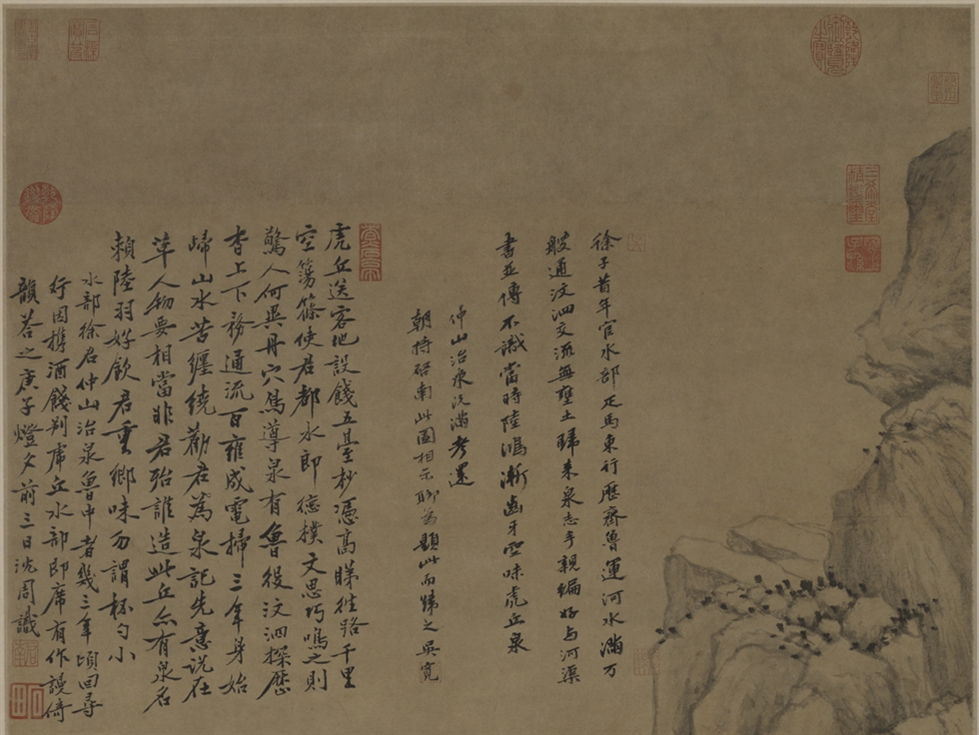 徐子昔年官水部疋馬東行歷齊魯運河水滿万
艘通汶泗交流無壅土歸来泉志手親編好与河渠
書並傳不識當時陸鴻漸齒牙空味虎丘泉
仲山治泉既滿考還
朝持啓南此圖相示聊為題此而歸之吳寬
虎丘送客地設餞五臺杪憑高睇往路千里
空蕩篠使君都水即德樸文思巧鳴之則
驚人何異丹穴鳥導泉有魯役汶泗探歷
杳上下務通流百雍成電掃三年身始
歸山水苦纏繞勸君為泉記先意說在
草人物要相當非君殆誰造此丘亦有泉名
賴陸羽好飲君重鄉味勿謂杯勺小
水部徐君仲山治泉魯中者幾三年頃回尋
行因攜酒餞別虎丘水部即席有作謾倚
韻荅之庚子燈夕前三日沈周識